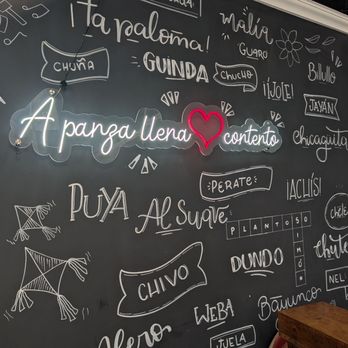 ¡ta paloma!
malía
GUARO
CHUÑA
GUINDA
Chucho
¡JOLE!
Bllullo
JAYÁN
A panza llena
contento
chicaguita
PERATE
¡ACHÍS!
PUYA
Al Suave
PLANTOSO
DUNDO
CHIVO
NEL
WEBA
Bayunco